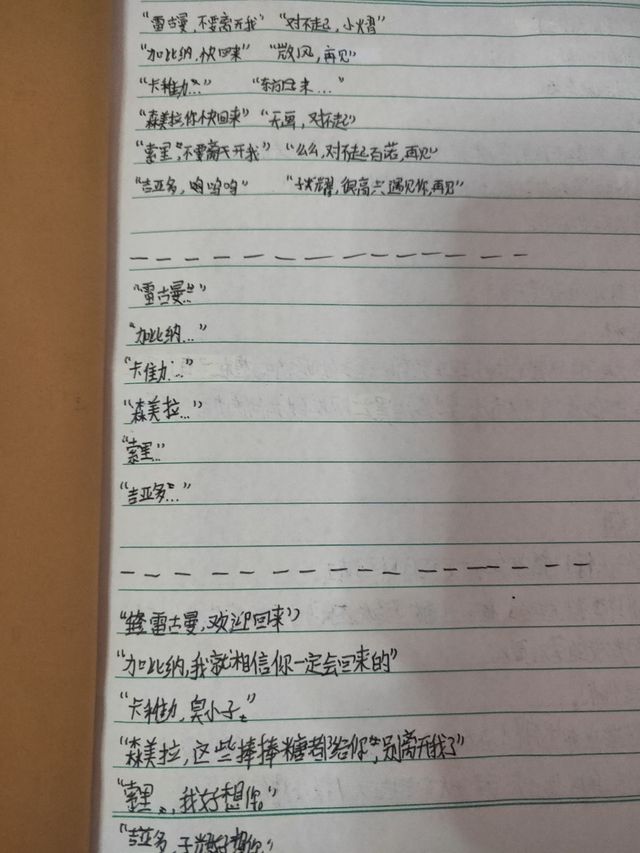 “雷古曼，不要离开我” “对不起，小熠”
“加比纳，快回来” “散风，再见”
“卡维力…” “东方末…”
“森美拉，你快回来” “天画，对不起”
“索里…，不要离开我” “么么，对不起百诺，再见”
“吉亚多，呜呜呜” “子耀，很高兴遇见你，再见”
“雷古曼…”
“加比纳…”
“卡维力…”
“森美拉…”
“索里…”
“吉亚多…”
“雷古曼，欢迎回来”
“加比纳，我就相信你一定会回来的”
“卡维力，臭小子。”
“森美拉，这些棒棒糖都给你，别离开我了”
“索里，我好想你。”
“吉亚多，子耀好想你”